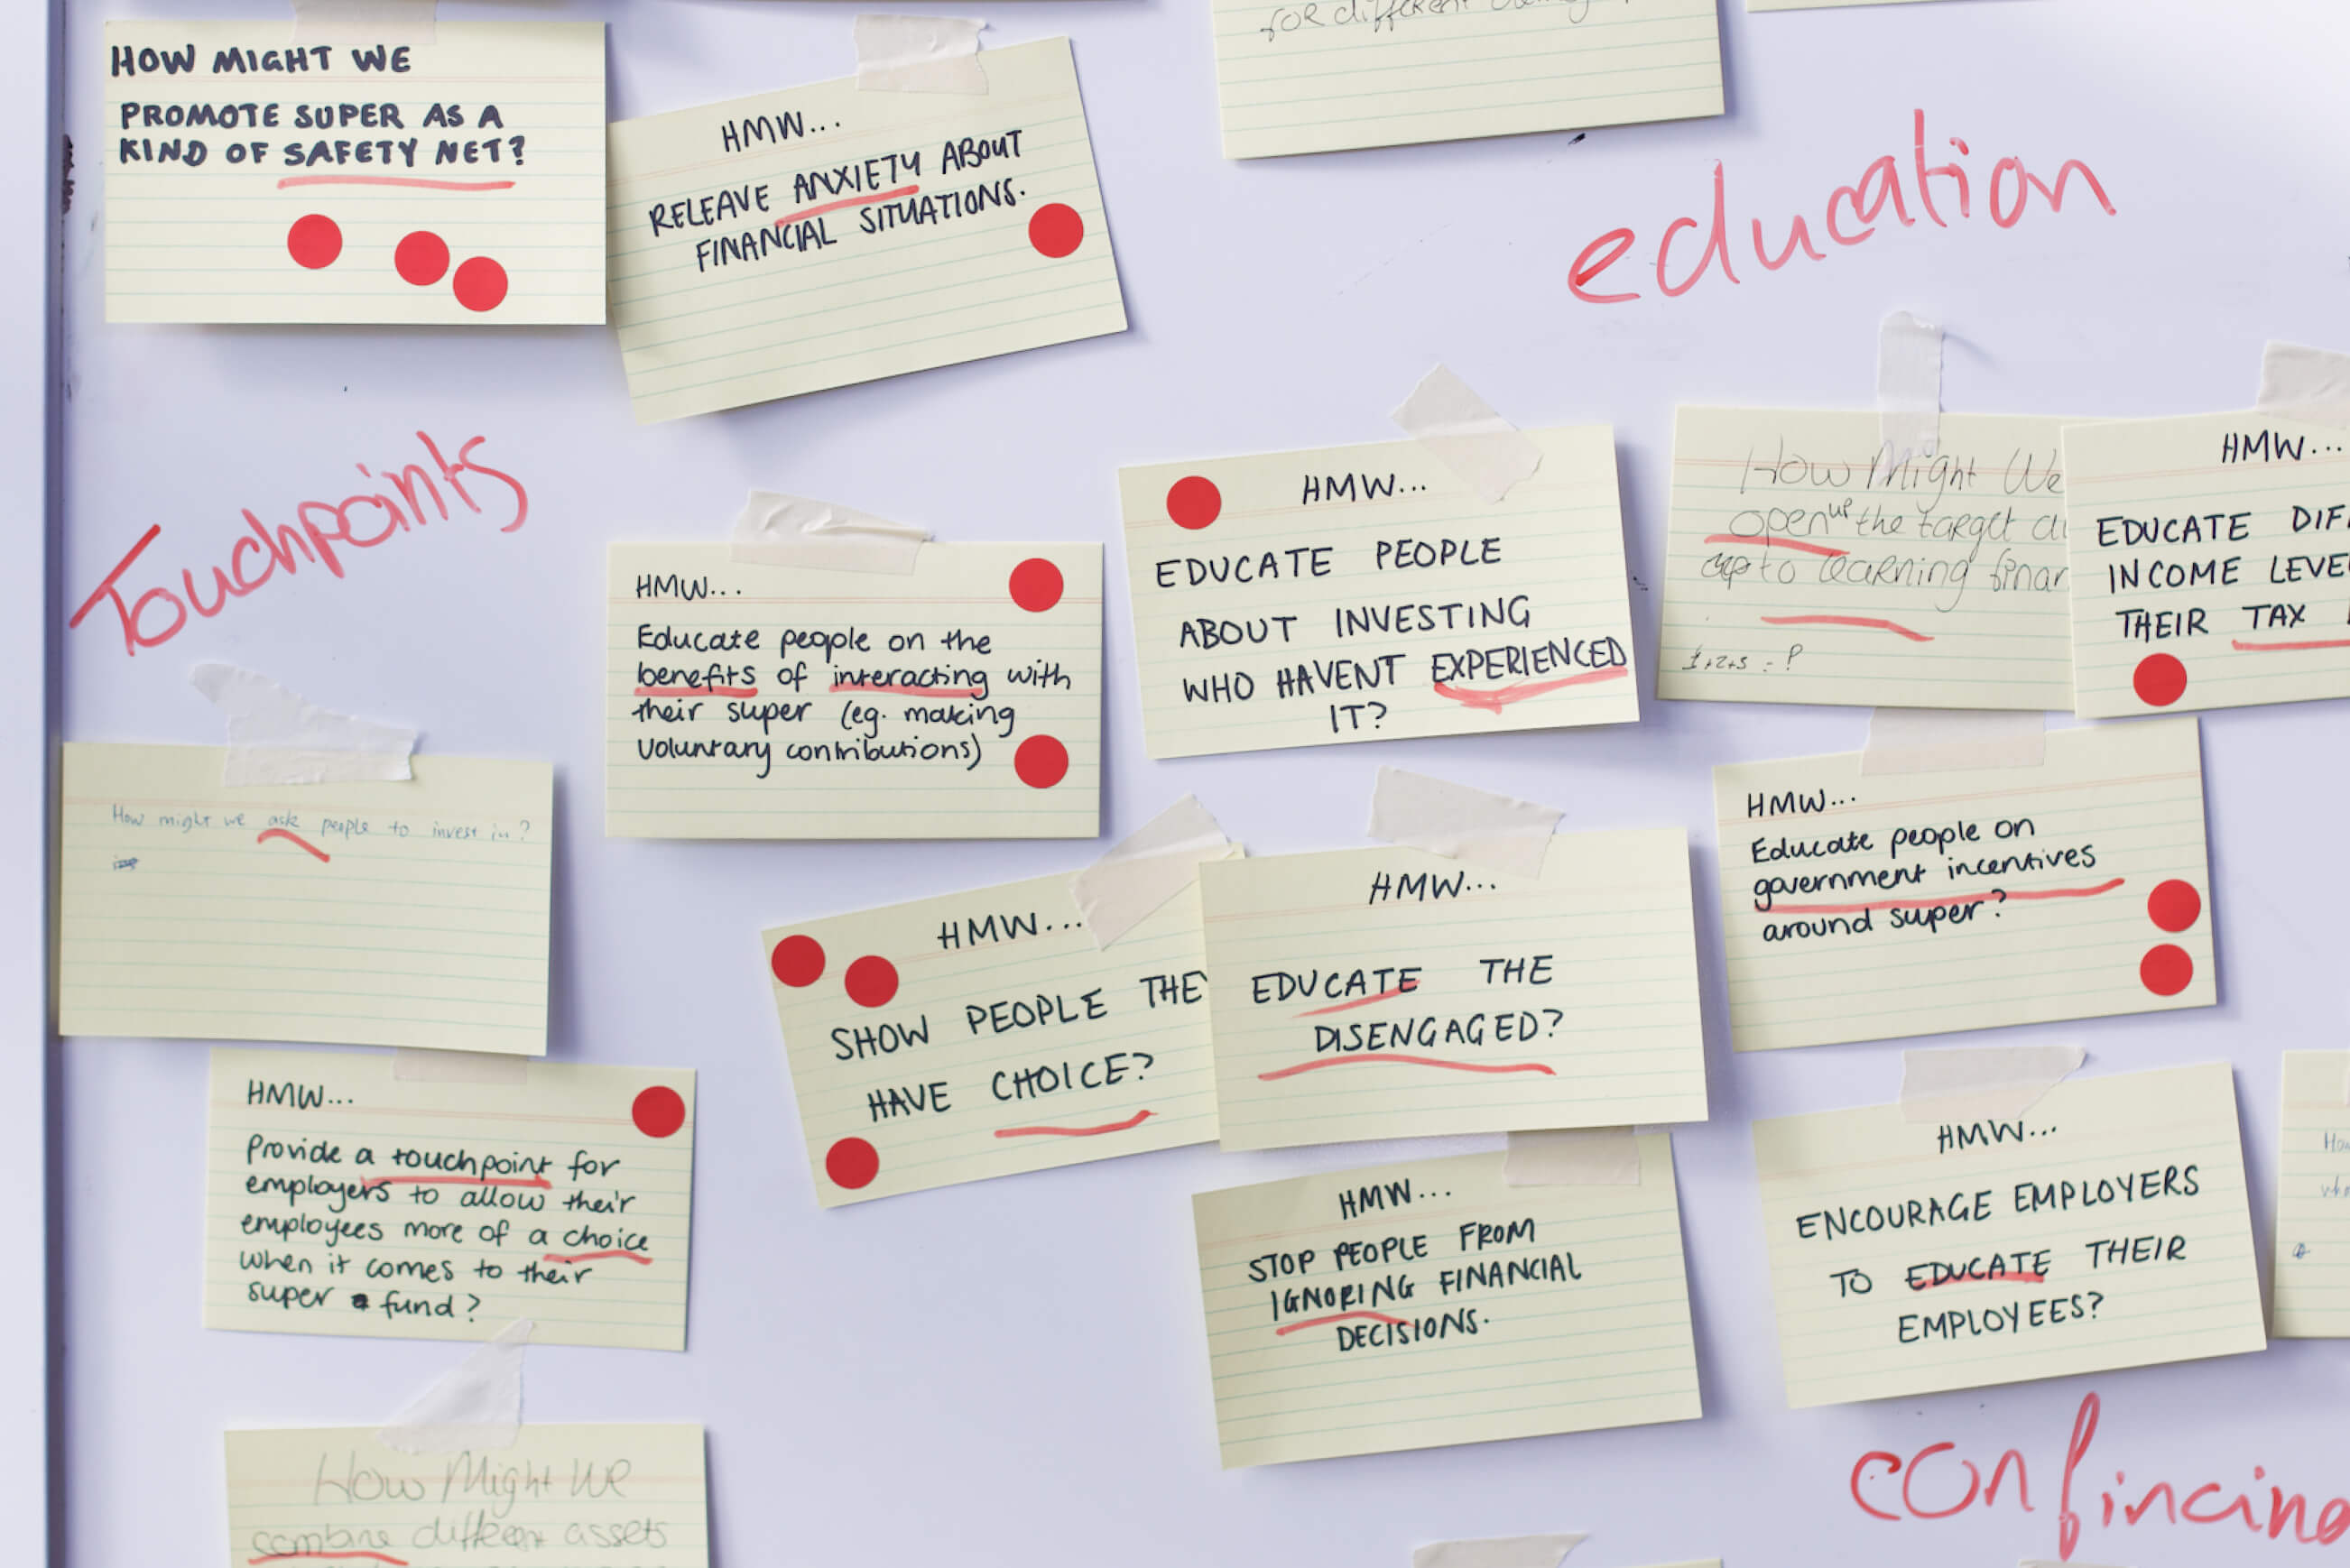 for different
HOW MIGHT WE
PROMOTE SUPER AS A
KIND OF SAFETY NET?
HMW...
RELEAVE ANXIETY ABOUT
FINANCIAL SITUATIONS.
education
Touchpoints
HMW...
Educate people on the
benefits of interacting with
their super (eg. making
voluntary contributions)
HMW...
EDUCATE PEOPLE
ABOUT INVESTING
WHO HAVENT EXPERIENCED
IT?
How Might We
open up the target
to learning
1+2+3 = ?
HMW...
EDUCATE
INCOME
THEIR TAX
How might we ask people to invest in?
HMW...
SHOW PEOPLE THE
HAVE CHOICE?
HMW...
EDUCATE THE
DISENGAGED?
HMW...
Educate people on
government incentives
around super?
HMW...
Provide a touchpoint for
employers to allow their
employees more of a choice
when it comes to their
super fund?
HMW...
STOP PEOPLE FROM
IGNORING FINANCIAL
DECISIONS.
HMW...
ENCOURAGE EMPLOYERS
TO EDUCATE THEIR
EMPLOYEES?
How Might We
combine different assets
confincing